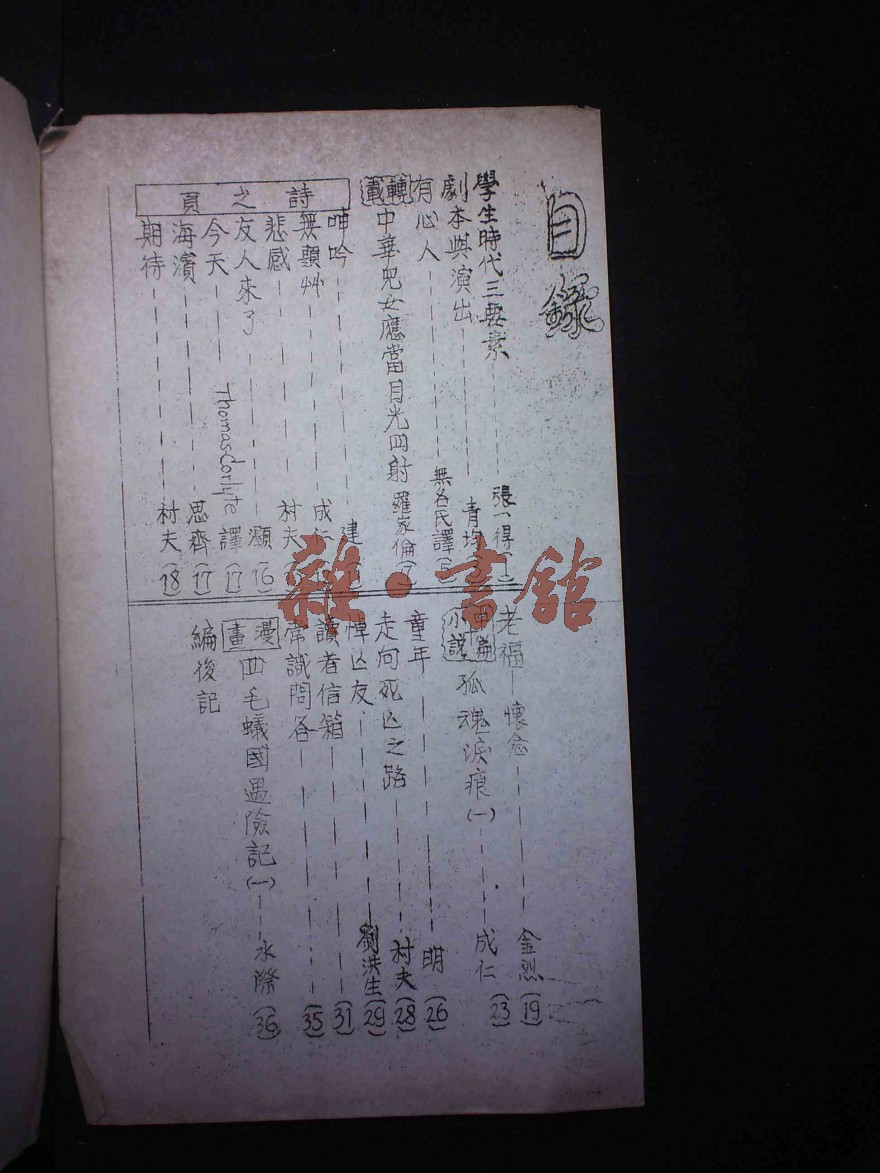 目錄
學生時代三要素 張一得
劇本與演出 青均
有心人 無名氏譯
轉載 中華兒女應當目光四射 羅家倫
詩之頁
呻吟 建
無題艸 成仁
悲感 村夫
友人來了 灝 (16)
今天 Thomas Carlyle 譯 (17)
海濱 思齊 (17)
期待 村夫 (18)
老福——懷念 金烈 (19)
小說 孤魂淚痕(一) 成仁 (23)
童年 明 (26)
走向死亡之路 村夫 (28)
悼亡友 劉洪生 (29)
讀者信箱 (31)
常識問答 (35)
漫畫 四毛蟻國遇險記(一) 冰隆 (36)
編後記
雜·書館